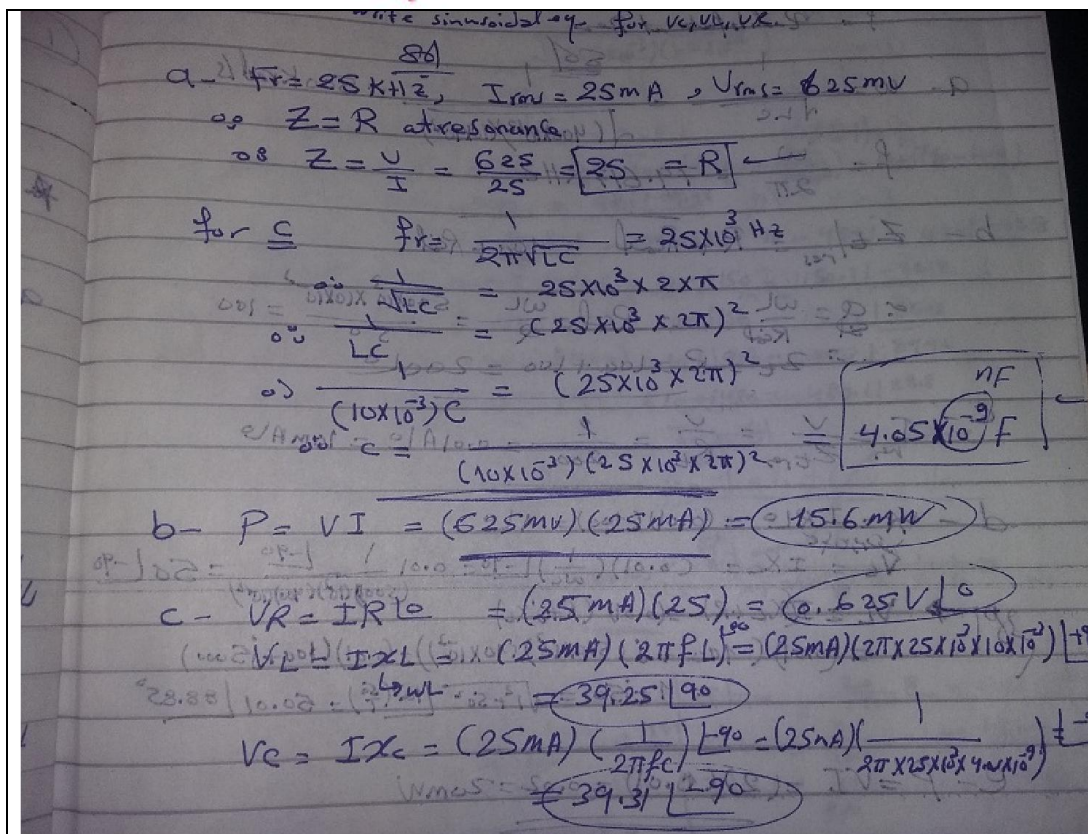 write sinusoidal eq. for Vc, VL, VR.
Sol
a- Fr = 25 KHz, Irms = 25mA, Vrms = 625mV
∴ Z = R at resonance
∴ Z = V/I = 625/25 = 25 = R
for C fr = 1/(2π√LC) = 25×10³ Hz
∴ 1/√LC = 25×10³ × 2×π
∴ 1/LC = (25×10³ × 2π)²
∴ 1/((10×10⁻³)C) = (25×10³ × 2π)²
∴ C = 1/((10×10⁻³)(25×10³×2π)²) = 4.05×10⁻⁹ F nF
b- P = VI = (625mV)(25mA) = 15.6 mW
c- VR = IR∠0 = (25mA)(25) = 0.625 V∠0
VL = IXL = (25mA)(2πfL)∠90 = (25mA)(2π×25×10³×10×10⁻³)
↳ WL = 39.25∠90
Vc = IXc = (25mA)(1/(2πfC))∠-90 = (25mA)(1/(2π×25×10³×4.05×10⁻⁹))
= 39.31∠-90